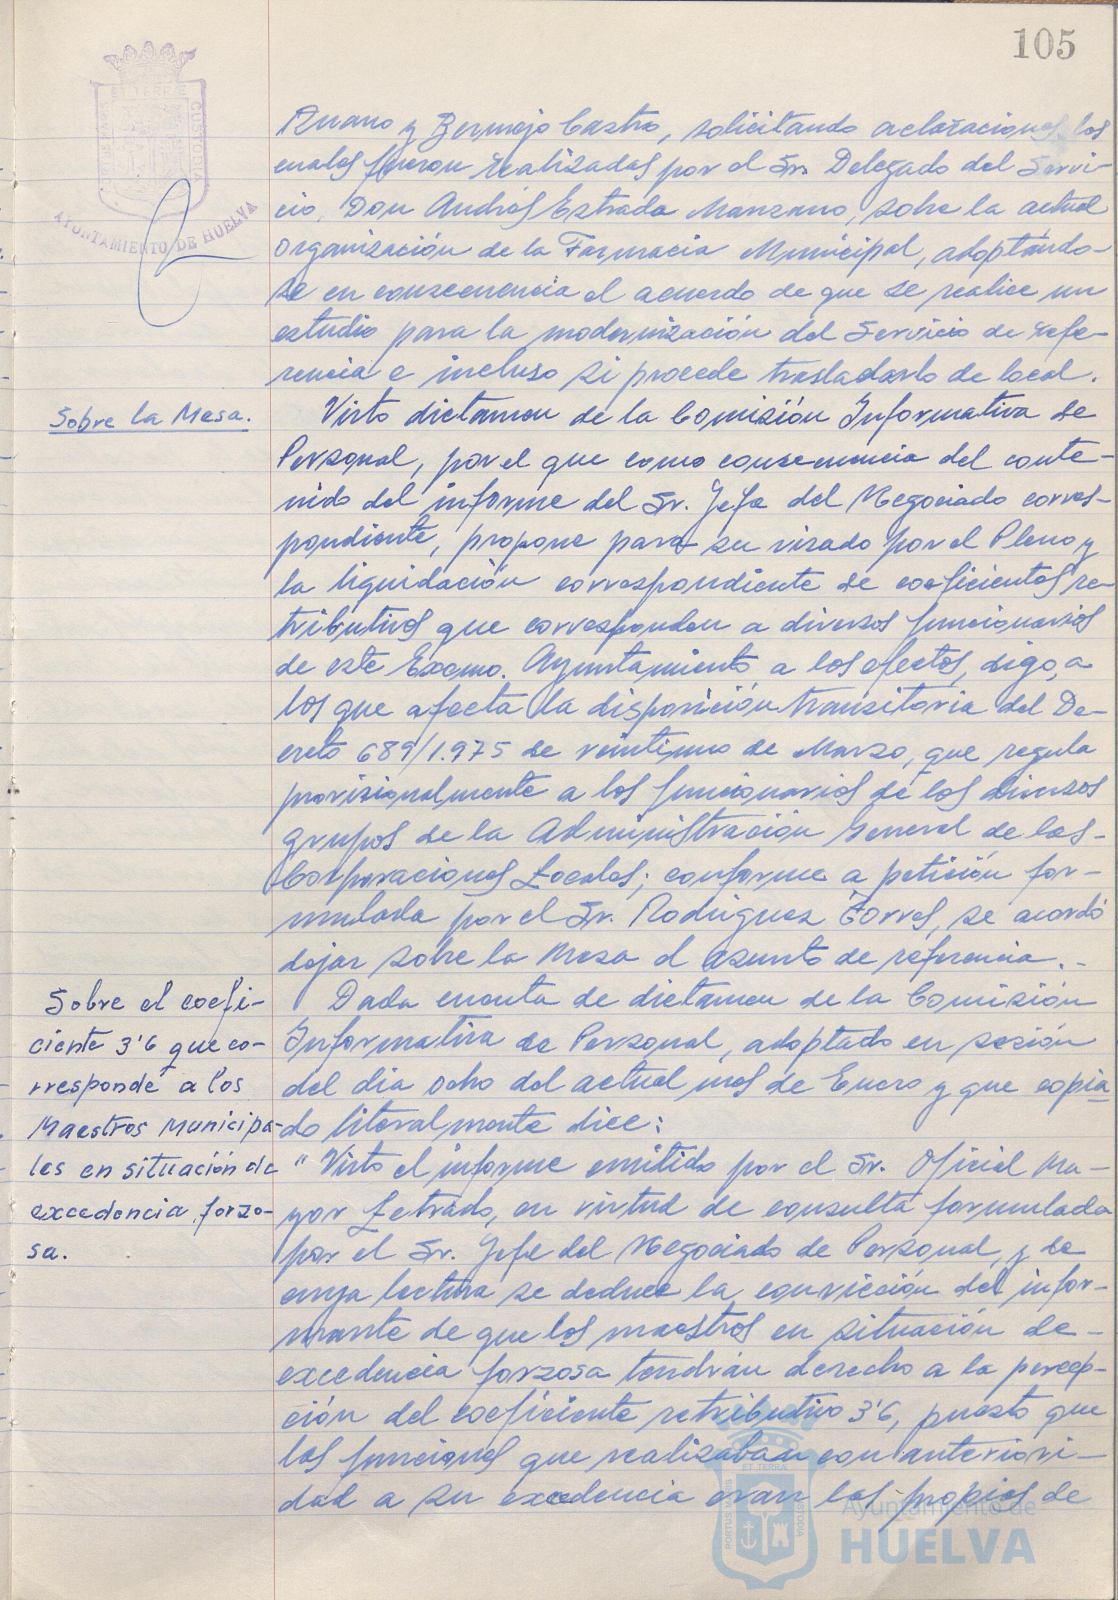 105
PORTUS MARIS ET TERRÆ CUSTODIA
AYUNTAMIENTO DE HUELVA
Ruano y Bermejo Castro, solicitando aclaraciones, las
cuales fueron realizadas por el Sr. Delegado del Servi-
cio, Don Andrés Estrada Manzano, sobre la actual
organización de la Farmacia Municipal, adoptándo-
se en consecuencia el acuerdo de que se realice un
estudio para la modernización del Servicio de refe-
rencia e incluso si procede trasladarlo de local.
Sobre la Mesa.
Visto dictamen de la Comisión Informativa de
Personal, por el que como consecuencia del conte-
nido del informe del Sr. Jefe del Negociado corres-
pondiente, propone para su visado por el Pleno y
la liquidación correspondiente de coeficientes re-
tributivos que corresponden a diversos funcionarios
de este Excmo. Ayuntamiento a los efectos, digo, a
los que afecta la disposición transitoria del De-
creto 689/1.975 de veintiuno de Marzo, que regula
provisionalmente a los funcionarios de los diversos
grupos de la Administración General de las-
Corporaciones Locales; conforme a petición for-
mulada por el Sr. Rodríguez Torres, se acordó
dejar sobre la Mesa el asunto de referencia.-
Sobre el coefi-
ciente 3'6 que co-
rresponde a los
Maestros Municipa-
les en situación de
excedencia forzo-
sa.
Dada cuenta de dictamen de la Comisión
Informativa de Personal, adoptado en sesión
del día ocho del actual mes de Enero y que copia
do literalmente dice:
"Visto el informe emitido por el Sr. Oficial Ma-
yor Letrado, en virtud de consulta formulada
por el Sr. Jefe del Negociado de Personal, y de
cuya lectura se deduce la convicción del infor-
mante de que los maestros en situación de-
excedencia forzosa tendrán derecho a la percep-
ción del coeficiente retributivo 3'6, puesto que
las funciones que realizaban con anteriori-
dad a su excedencia eran las propias de
PORTUS MARIS ET TERRÆ CUSTODIA
Ayuntamiento de
HUELVA